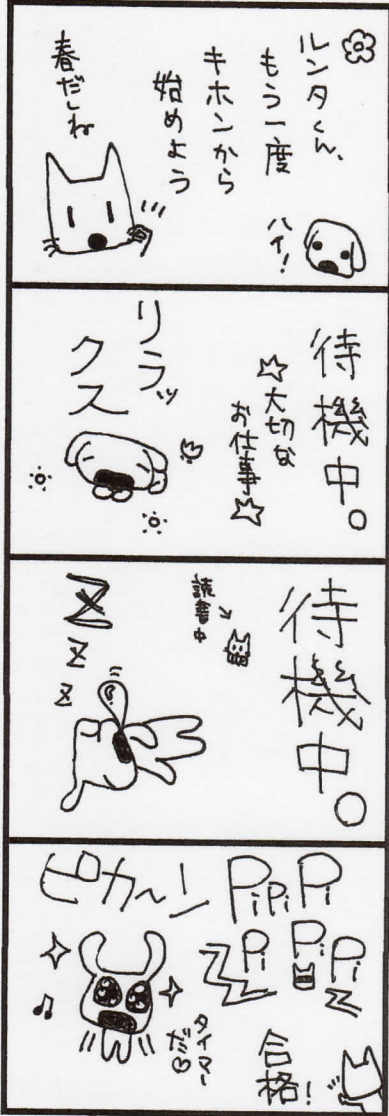 ルンタくん、
もう一度
キホンから
始めよう
春だしね
ハイ!
待機中。
☆大切な
お仕事☆
リラッ
クス
待機中。
読書中
Z
z
z
PiPiPi
Pi Pi Pi
ピカ〜ン
タイマー
だ♡
合格!